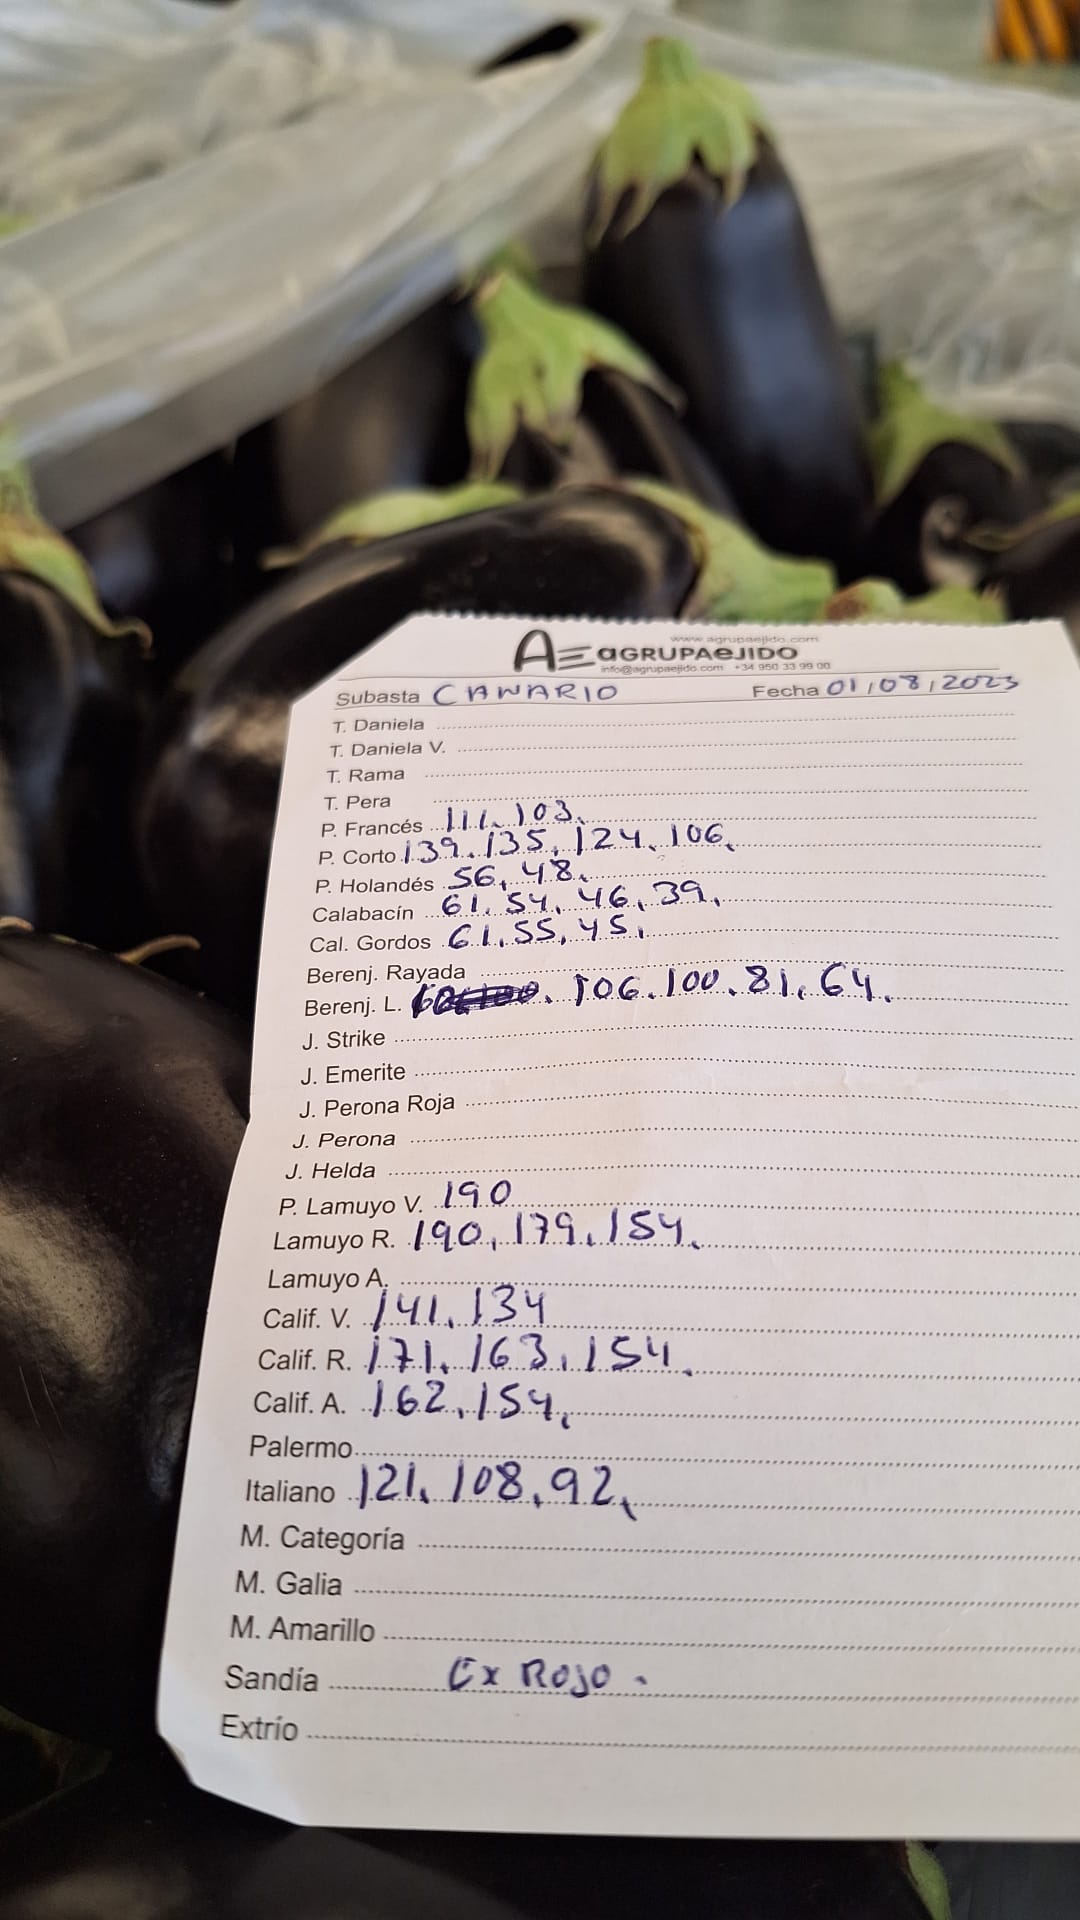 www.agrupaejido.com
AE aGRUPAeJIDO
info@agrupaejido.com +34 950 33 99 00
Subasta CANARIO Fecha 01/08/2023
T. Daniela
T. Daniela V.
T. Rama
T. Pera
P. Francés 111, 103,
P. Corto 139, 135, 124, 106,
P. Holandés 56, 48,
Calabacín 61, 54, 46, 39,
Cal. Gordos 61, 55, 45,
Berenj. Rayada
Berenj. L. 106, 100, 81, 64,
J. Strike
J. Emerite
J. Perona Roja
J. Perona
J. Helda
P. Lamuyo V. 190
Lamuyo R. 190, 179, 154,
Lamuyo A.
Calif. V. 141, 134
Calif. R. 171, 163, 154,
Calif. A. 162, 154,
Palermo
Italiano 121, 108, 92,
M. Categoría
M. Galia
M. Amarillo
Sandía Ex Rojo.
Extrío